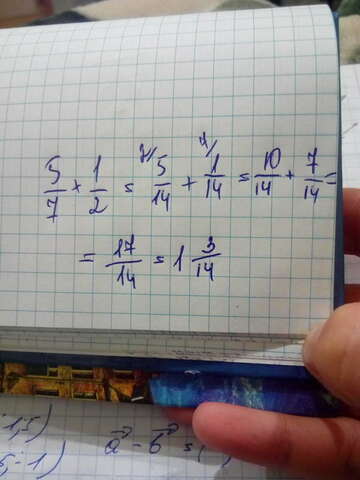 5/7 + 1/2 = 2/ 5/14 + 7/ 1/14 = 10/14 + 7/14 =
= 17/14 = 1 3/14
: 1,5)
; -1) a⃗ - b⃗ = (